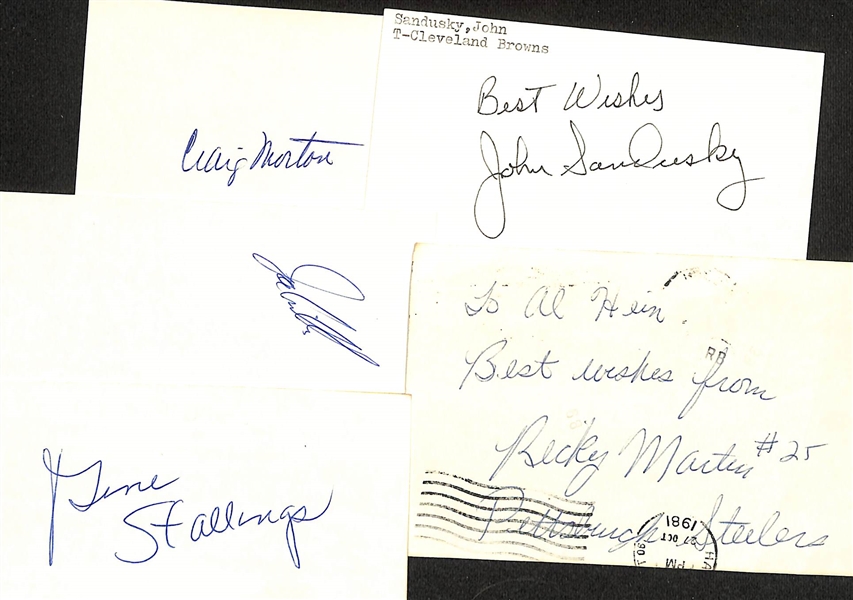 Sandusky,John
T-Cleveland Browns
Best Wishes
John Sandusky
Craig Morton
To Al Hein.
Best wishes from
Becky Martin #25
Pittsburgh Steelers
Gene
Stallings
RB
1981
OCT
PM
HA